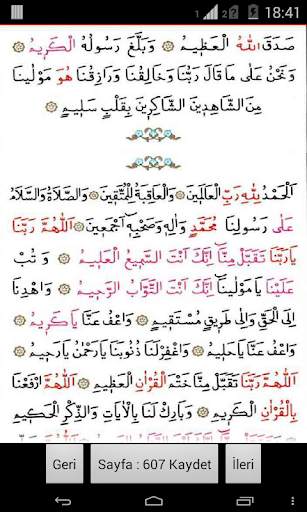 18:41
صَدَقَ اللّٰهُ الْعَظِيمُ ۞ وَبَلَّغَ رَسُولُهُ الْكَرِيمُ ۞
وَنَحْنُ عَلٰى مَا قَالَ رَبُّنَا وَخَالِقُنَا وَرَازِقُنَا هُوَ مَوْلٰينَا
مِنَ الشَّاهِدِينَ الشَّاكِرِينَ بِقَلْبٍ سَلِيمٍ ۞
اَلْحَمْدُ لِلّٰهِ رَبِّ الْعَالَمِينَ ۞ وَالْعَاقِبَةُ لِلْمُتَّقِينَ ۞ وَالصَّلَاةُ وَالسَّلَامُ
عَلٰى رَسُولِنَا مُحَمَّدٍ وَاٰلِهِ وَصَحْبِهِ اَجْمَعِينَ ۞ اَللّٰهُمَّ رَبَّنَا
يَا رَبَّنَا تَقَبَّلْ مِنَّا اِنَّكَ اَنْتَ السَّمِيعُ الْعَلِيمُ ۞ وَتُبْ
عَلَيْنَا يَا مَوْلٰينَا ۞ اِنَّكَ اَنْتَ التَّوَّابُ الرَّحِيمُ ۞ وَاهْدِنَا
اِلَى الْحَقِّ وَاِلٰى طَرِيقٍ مُسْتَقِيمٍ ۞ وَاعْفُ عَنَّا يَا كَرِيمُ ۞
وَاعْفُ عَنَّا يَا حَلِيمُ ۞ وَاغْفِرْ لَنَا ذُنُوبَنَا يَا رَحْمٰنُ يَا رَحِيمُ ۞
اَللّٰهُمَّ رَبَّنَا تَقَبَّلْ مِنَّا خَتْمَ الْقُرْاٰنِ الْعَظِيمِ ۞ اَللّٰهُمَّ ارْفَعْنَا
بِالْقُرْاٰنِ الْكَرِيمِ ۞ وَبَارِكْ لَنَا بِالْاٰيَاتِ وَالذِّكْرِ الْحَكِيمِ
Geri
Sayfa : 607 Kaydet
İleri